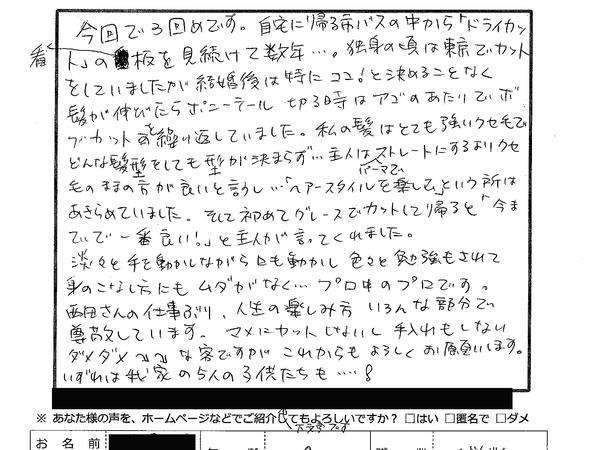 今回で3回めです。自宅に帰る市バスの中から「ドライカッ
ト」の看板を見続けて数年…。独身の頃は東京でカット
をしていましたが結婚後は特にココ!と決めることなく
髪が伸びたらポニーテール 切る時はアゴのあたりでボ
ブカットを繰り返していました。私の髪はとても強いクセ毛で
どんな髪型をしても型が決まらず…主人はストレートパーマでにするよりクセ
毛のままの方が良いと言うし…「ヘアースタイルを楽しむ」という所は
あきらめていました。そして初めてグレースでカットして帰ると「今ま
でで一番良い!」と主人が言ってくれました。
淡々と手を動かしながら口も動かし 色々と勉強もされて
身のこなし方にもムダがなく…プロ中のプロです。
西田さんの仕事ぶり、人生の楽しみ方 いろんな部分で
尊敬しています。マメにカットしないし手入れもしない
ダメダメな客ですが これからもよろしくお願いします。
いずれは我家の5人の子供たちも…!
※ あなた様の声を、ホームページなどでご紹介してもよろしいですか? □はい □匿名で □ダメ
お名前